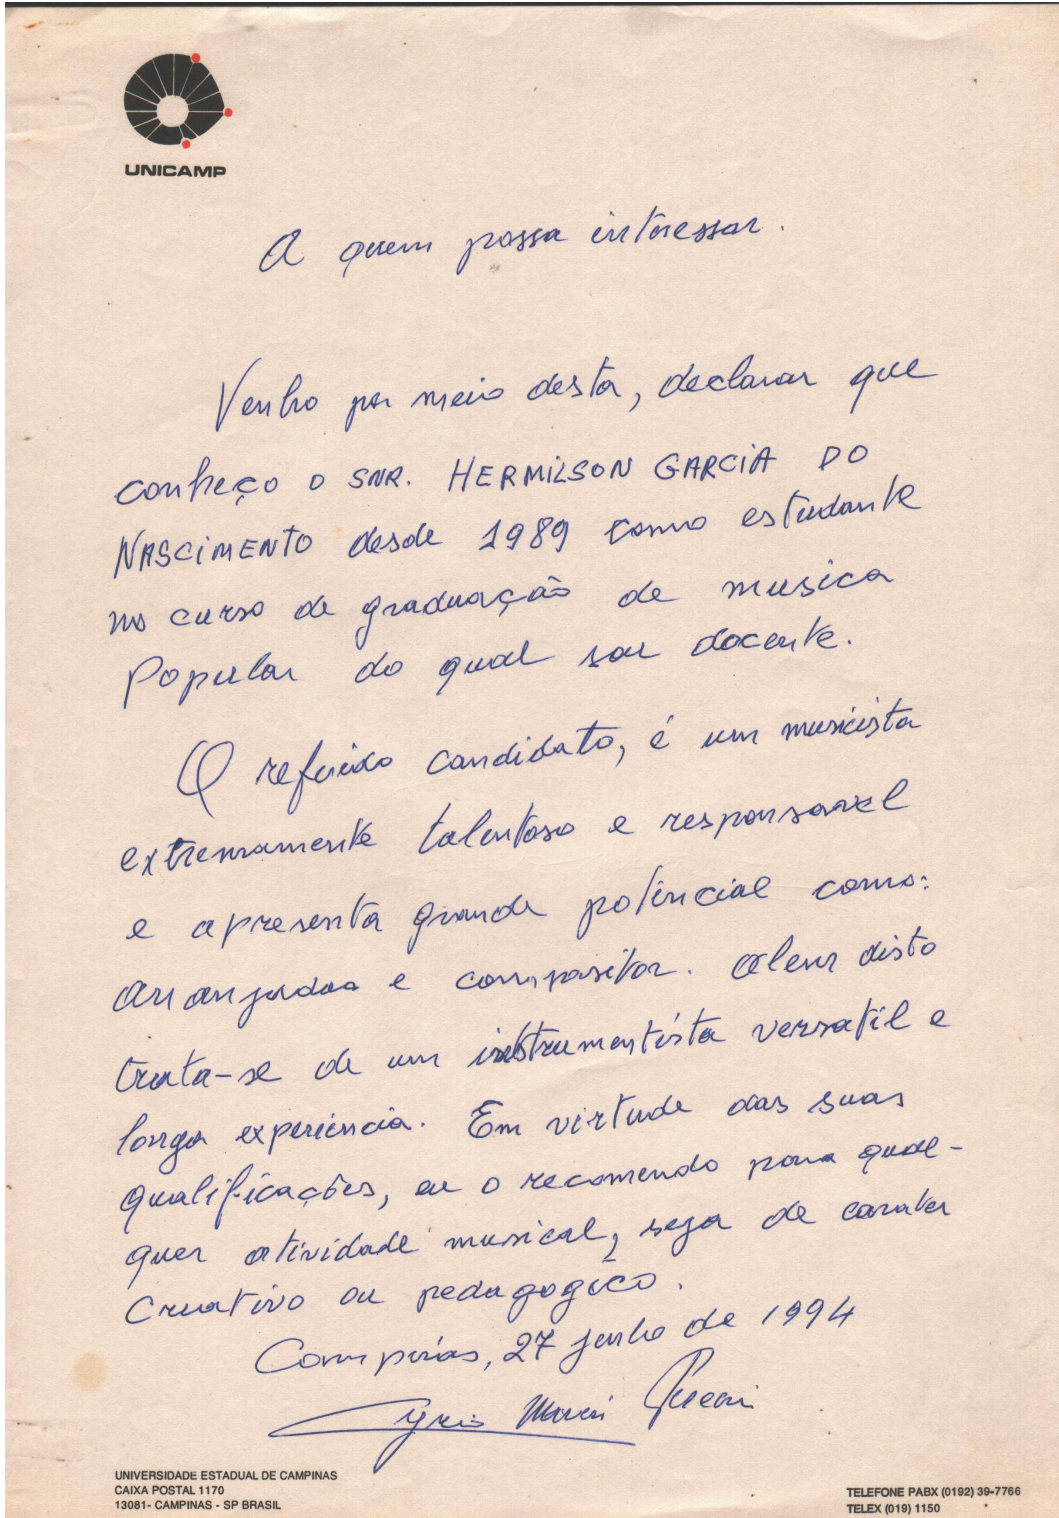 UNICAMP
A quem possa interessar.
Venho por meio desta, declarar que
conheço o SNR. HERMILSON GARCIA DO
NASCIMENTO desde 1989 como estudante
no curso de graduação de musica
Popular do qual sou docente.
O referido candidato, é um musicista
extremamente talentoso e responsavel
e apresenta grande potencial como:
arranjador e compositor. Alem disto
trata-se de um instrumentista versatil e
longa experiência. Em virtude das suas
qualificações, eu o recomendo para qual-
quer atividade musical, seja de carater
Creativo ou pedagogico.
Campinas, 27 junho de 1994
UNIVERSIDADE ESTADUAL DE CAMPINAS
CAIXA POSTAL 1170
13081- CAMPINAS - SP BRASIL
TELEFONE PABX (0192) 39-7766
TELEX (019) 1150